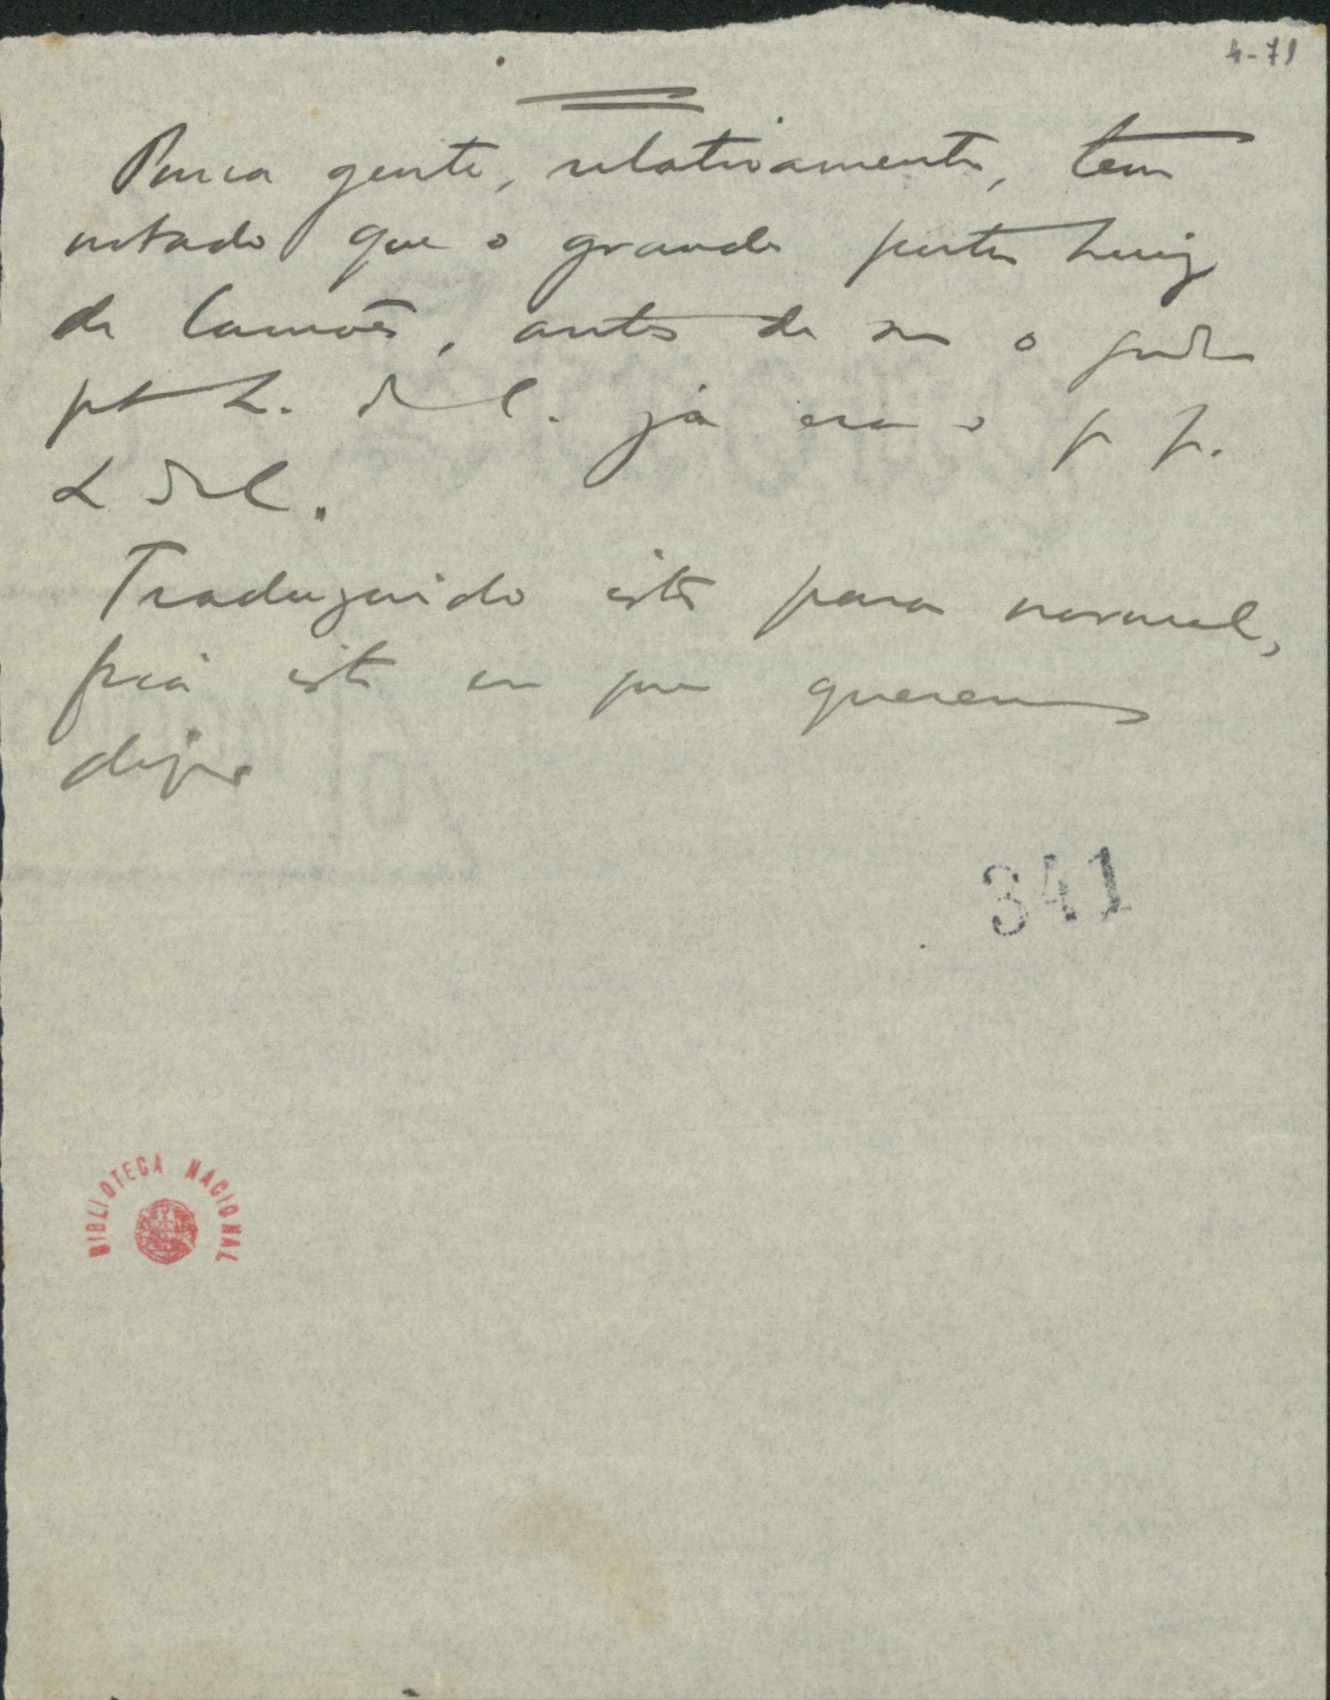 4-71
Pouca gente, relativamente, tem
notado que o grande poeta Luiz
de Camões, antes de ser o grande
poeta L. de C. já era o p p.
L de C.
Traduzindo isto para normal,
isto em que queremos
dizer
341
BIBLIOTECA NACIONAL